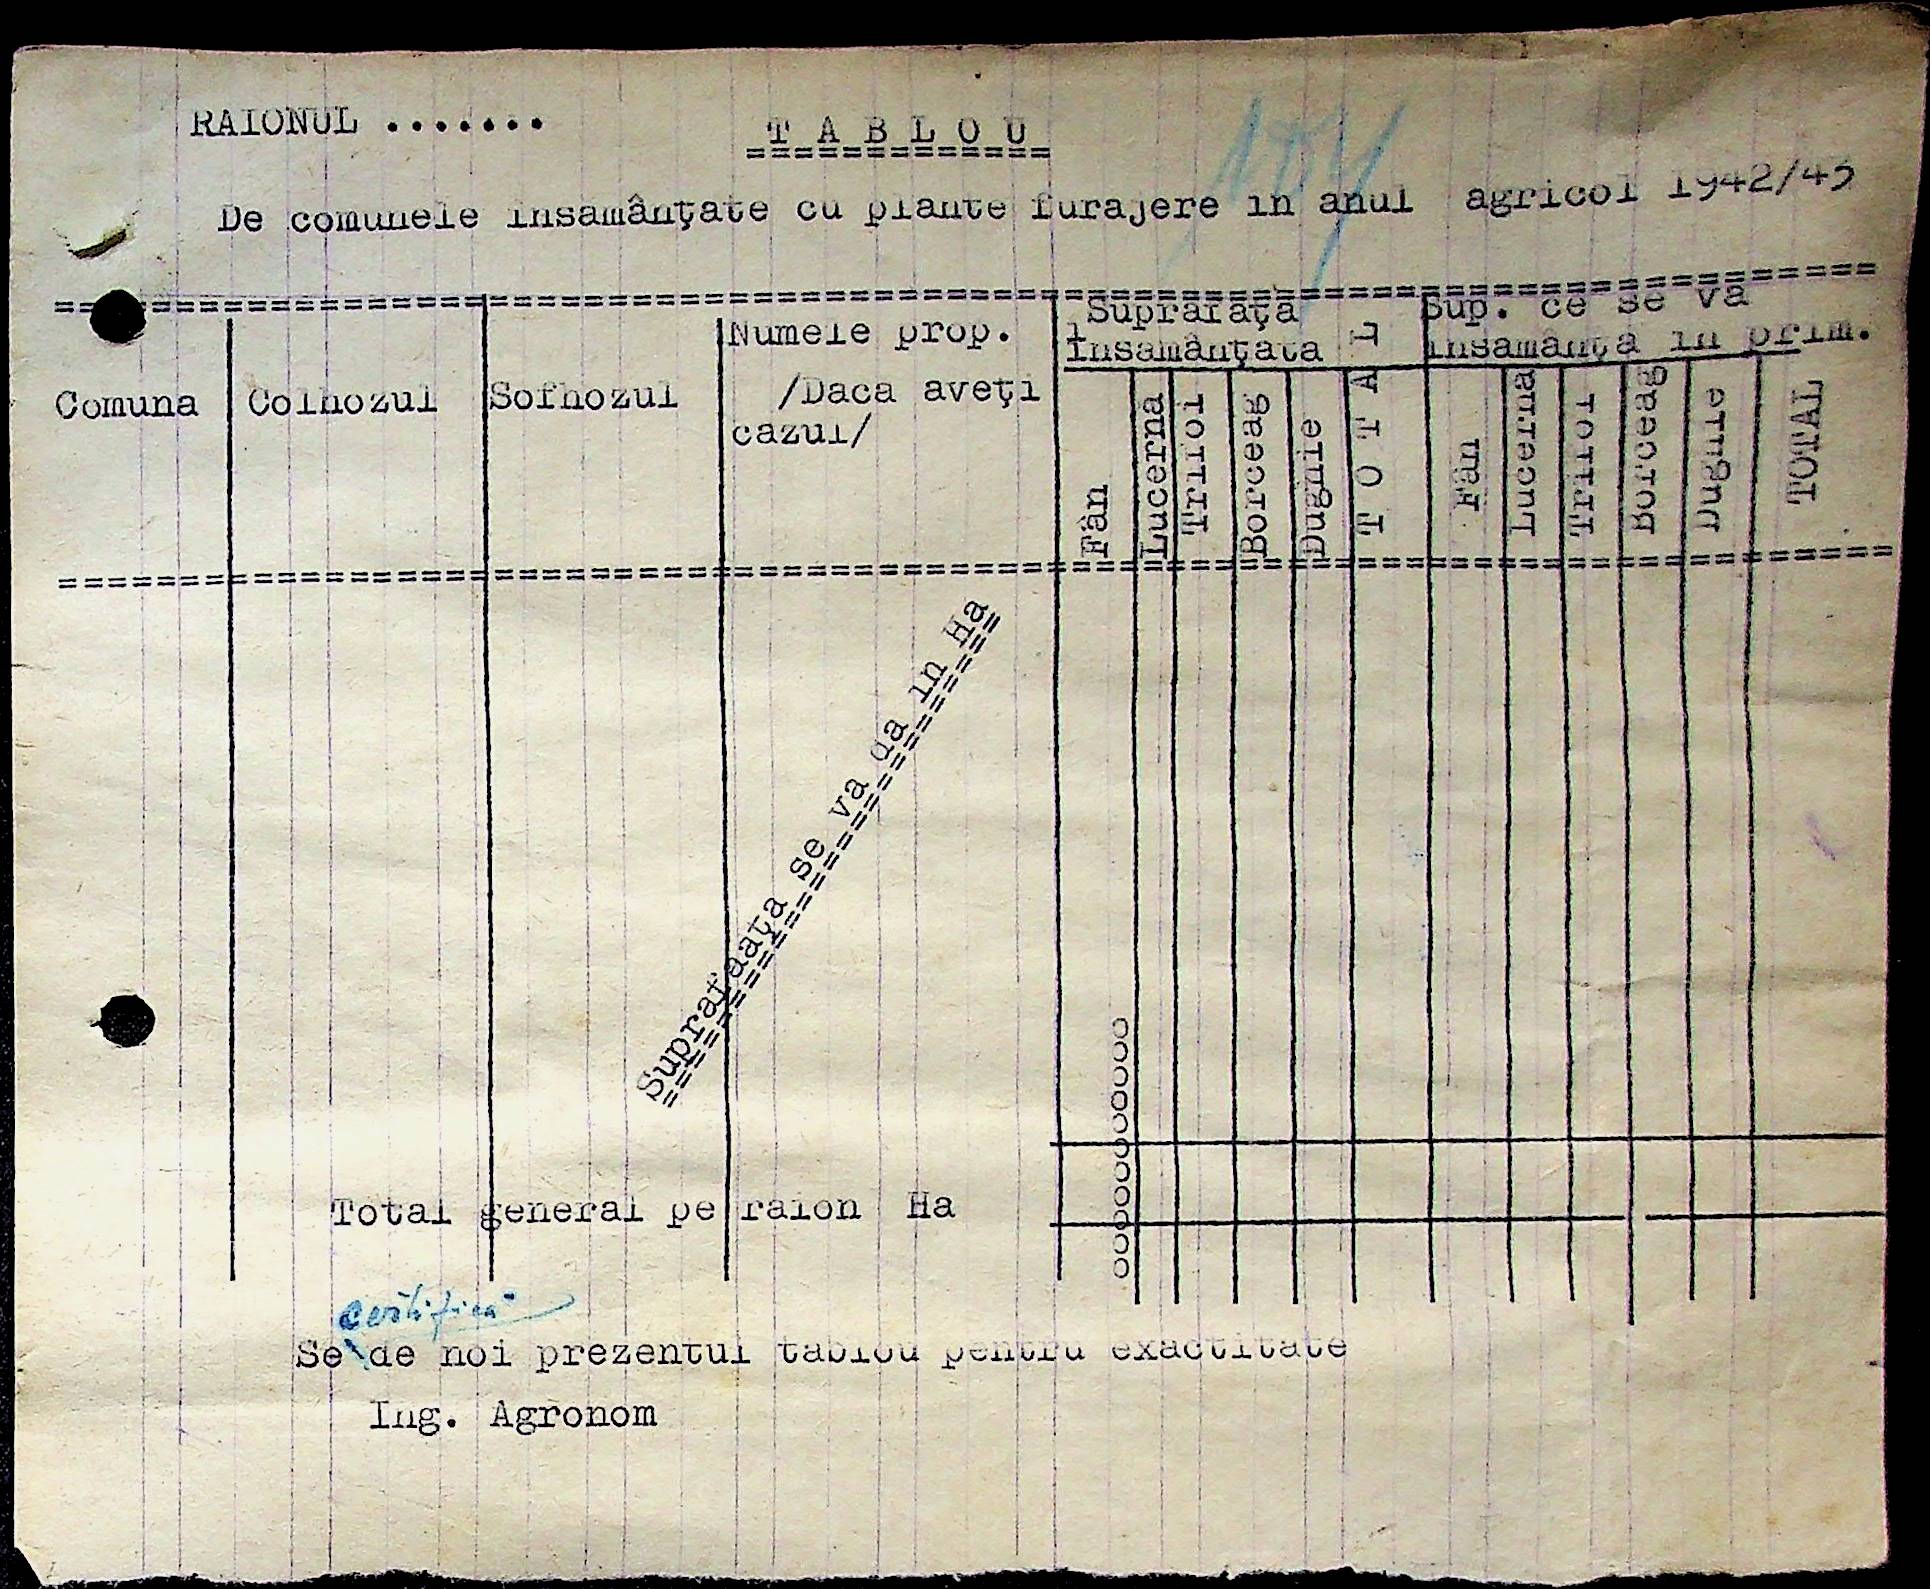 RAIONUL .......
T A B L O U
De comunele însamânţate cu plante furajere în anul agricol 1942/43
Comuna
Colhozul
Sofhozul
Numele prop.
/Daca aveţi
cazul/
Suprafaţa
însamânţata
Fân
Lucerna
Trifoi
Borceag
Dughie
T O T A L
Sup. ce se va
însamânţa în prim.
Fân
Lucerna
Trifoi
Borceag
Dughie
TOTAL
Suprafaaţa se va da în Ha
ooooooooooo
Total general pe raion Ha
certifică
Se de noi prezentul tablou pentru exactitate
Ing. Agronom